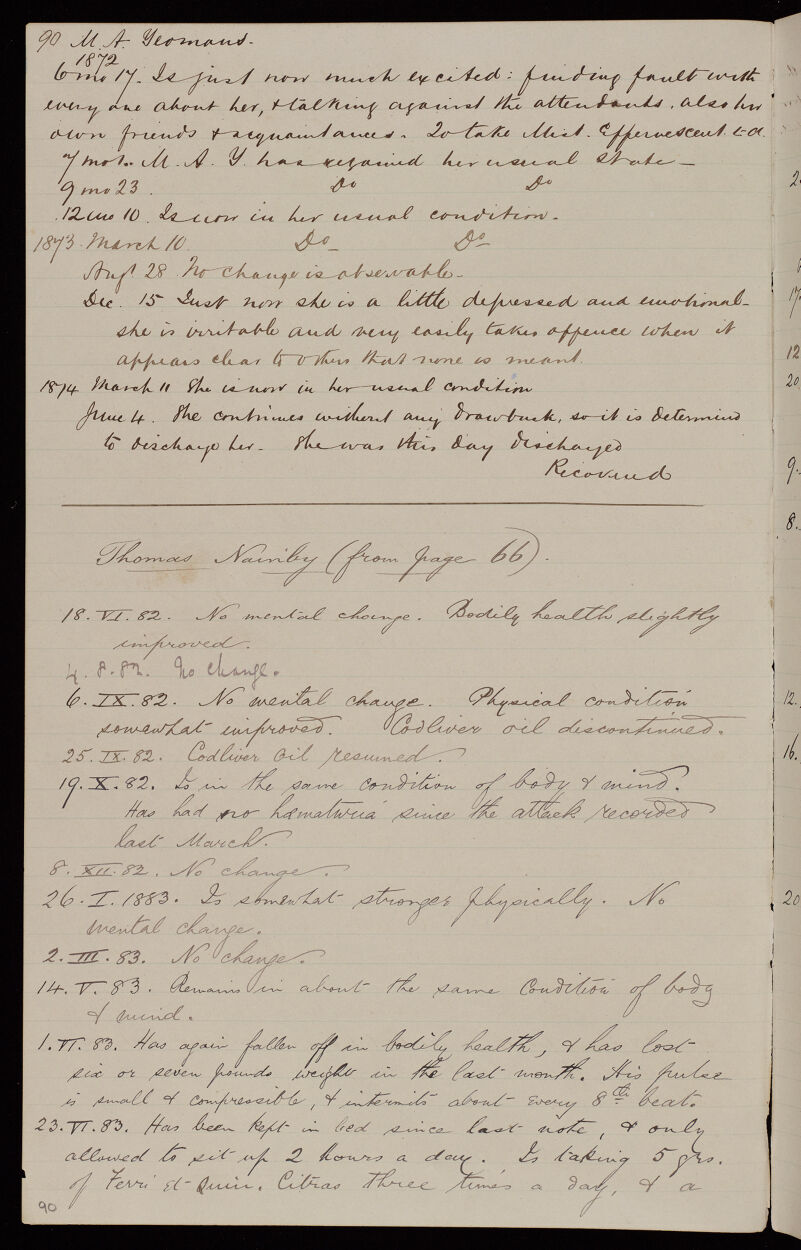 90 M. A. Yeomans.
1872
6 mo 17. Is just now much excited: finding fault with
every one about her, & talking against the attendants. also her
own friends & acquaintances. To take Mist. Effervescent t-d.
7 mo 1. M. A. Y. has regained her usual state —
9 mo 23. Do Do
12 mo 10. Is now in her usual condition.
1873. March 10. Do — Do —
Augt 28. No change is observable.
Dec. 15 Just now she is a little depressed and emotional-
she is irritable and very easily takes offence when it
appears clear to others that none is meant.
1874 March 11 She is now in her usual condition
June 4. She continues without any drawback, so it is determined
to discharge her. She was this day discharged
Recovered
Thomas Nainby (from page 66).
18. VI. 82. No mental change. Bodily health slightly
improved.
4. 8. 82. No change.
6. IX. 82. No mental change. Physical condition
somewhat improved. Codliver oil discontinued.
25. IX. 82. Codliver oil resumed.
19. X. 82. Is in the same condition of body & mind.
Has had no hæmaturia since the attack recorded
last March.
8. XII. 82. No change.
26. I. 1883. Is somewhat stronger physically. No
mental change.
2. III. 83. No change.
14. V. 83. Remains in about the same condition of body
& mind.
1. VI. 83. Has again fallen off in bodily health, & has lost
six or seven pounds weight in the last month. His pulse
is small & compressible, & intermits about every 8th beat.
23. VI. 83. Has been kept in bed since last note, & only
allowed to sit up 2 hours a day. Is taking 5 grs.
of Ferri et Quin. Citras three times a day, & a
90
2.
17
12
20
9.
8.
12.
16.
20